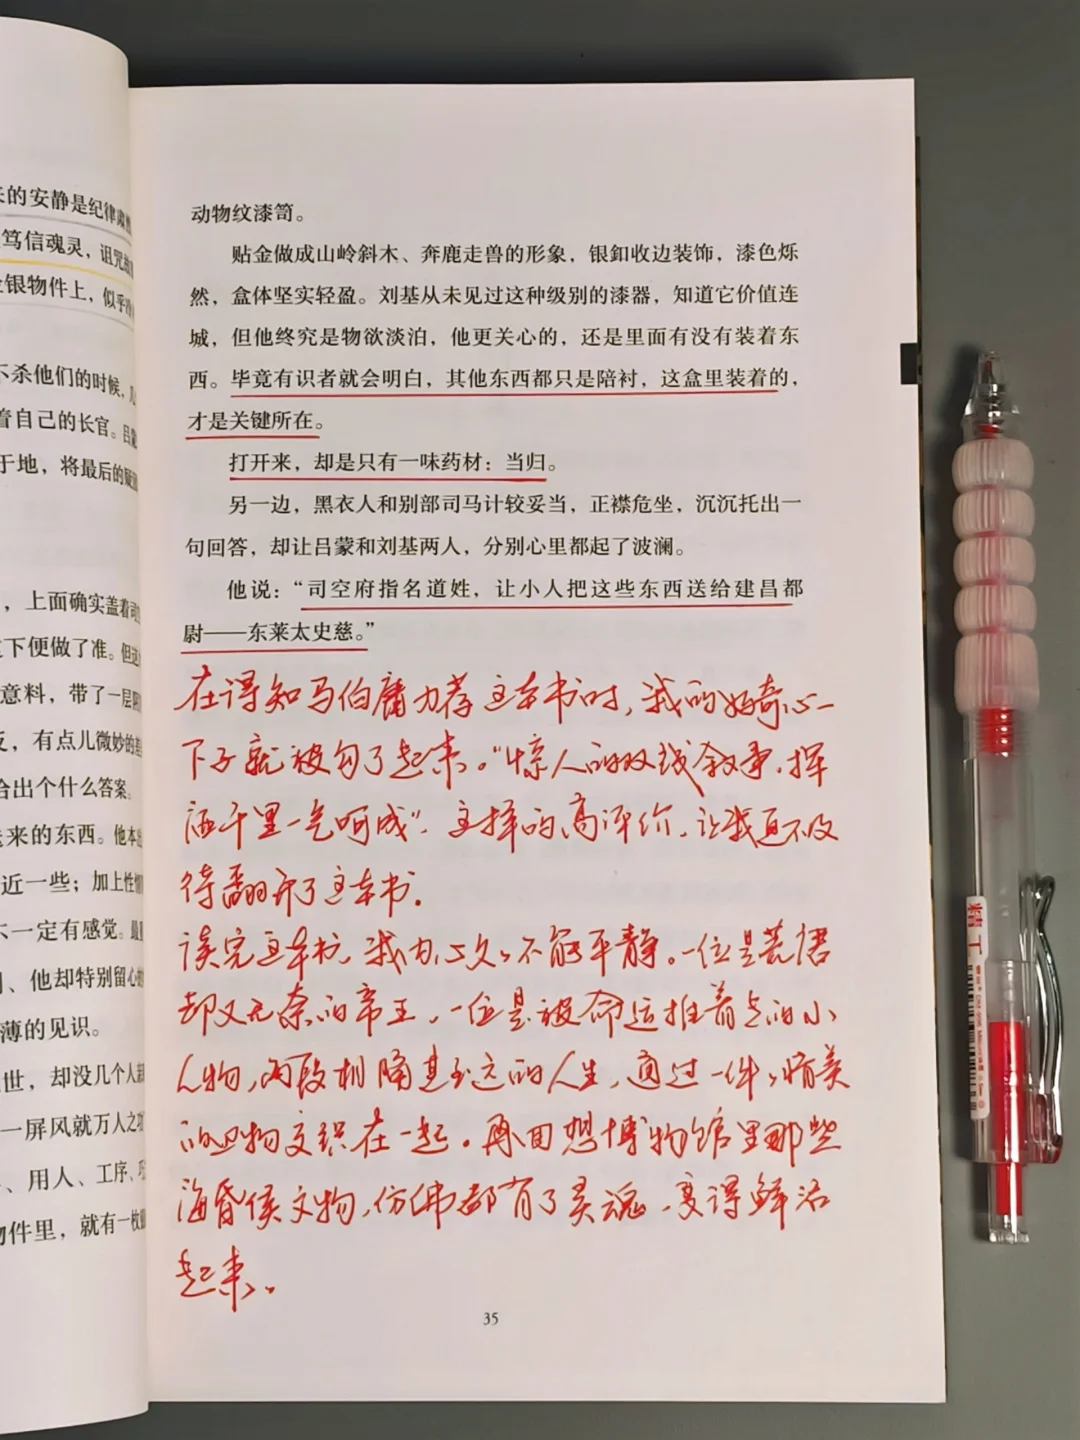 来的安静是纪律肃
笃信魂灵，诅咒
金银物件上，似乎
不杀他们的时候，
着自己的长官。吕蒙
于地，将最后的疑
，上面确实盖着司
下便做了准。但这
意料，带了一层
反，有点儿微妙的差
给出个什么答案。
送来的东西。他本
近一些；加上性情
不一定有感觉。最
、他却特别留心
薄的见识。
世，却没几个人
一屏风就万人之功
、用人、工序、巧
物件里，就有一枚
动物纹漆笥。
贴金做成山岭斜木、奔鹿走兽的形象，银釦收边装饰，漆色烁
然，盒体坚实轻盈。刘基从未见过这种级别的漆器，知道它价值连
城，但他终究是物欲淡泊，他更关心的，还是里面有没有装着东
西。毕竟有识者就会明白，其他东西都只是陪衬，这盒里装着的，
才是关键所在。
打开来，却是只有一味药材：当归。
另一边，黑衣人和别部司马计较妥当，正襟危坐，沉沉托出一
句回答，却让吕蒙和刘基两人，分别心里都起了波澜。
他说：“司空府指名道姓，让小人把这些东西送给建昌都
尉——东莱太史慈。”
在得知马伯庸力荐这本书时，我的好奇心一
下子就被勾了起来。“惊人的双线叙事，挥
洒千里一气呵成”，这样的高评价，让我迫不及
待翻开了这本书。
读完这本书，我内心久久不能平静。一位是荒唐
却又无奈的帝王，一位是被命运推着走的小
人物，两段相隔甚至远的人生，通过一件件精美
的文物交织在一起。再回想博物馆里那些
海昏侯文物，仿佛都有了灵魂，变得鲜活
起来。
35
精工